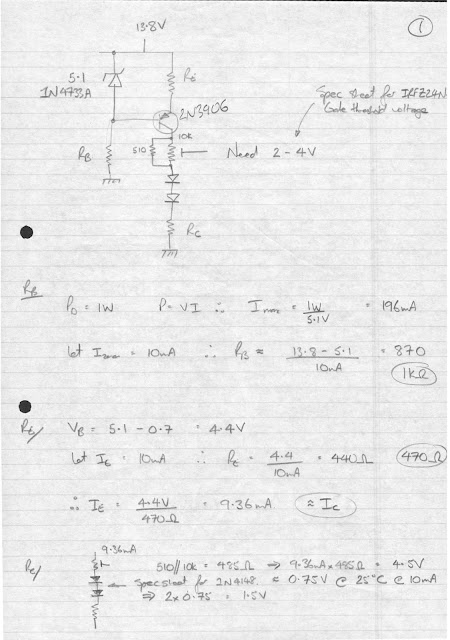 1
13.8V
5.1
1N4733A
RE
2N3906
Spec sheet for IRFZ24N
Gate threshold voltage
10k
510
RB
Need 2 - 4V
RC
RB
PD = 1W P = VI ∴ Imax = 1W / 5.1V = 196mA
let Izener = 10mA ∴ RB ≈ 13.8 - 5.1 / 10mA = 870
1kΩ
RE/ VB = 5.1 - 0.7 = 4.4V
let IE = 10mA ∴ RE = 4.4 / 10mA = 440Ω 470Ω
∴ IE = 4.4V / 470Ω = 9.36mA ≈ IC
RC/ 9.36mA
510//10k = 485Ω ⇒ 9.36mA x 485Ω = 4.5V
Spec sheet for 1N4148 = 0.75V @ 25°C @ 10mA
⇒ 2 x 0.75 = 1.5V